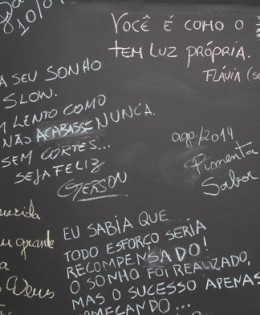 10/0
VOCÊ É COMO O
TEM LUZ PRÓPRIA.
FLÁVIA (S
A SEU SONHO
SLOW.
M LENTO COMO
NÃO ACABASSE NUNCA.
SEM CORTES...
SEJA FELIZ
GERSON
ago./2014
Pimenta
Sabor
erida
u grande
a
Deus
EU SABIA QUE
TODO ESFORÇO SERIA
RECOMPENSADO!
O SONHO FOI REALIZADO,
MAS O SUCESSO APENAS
OMEÇANDO...